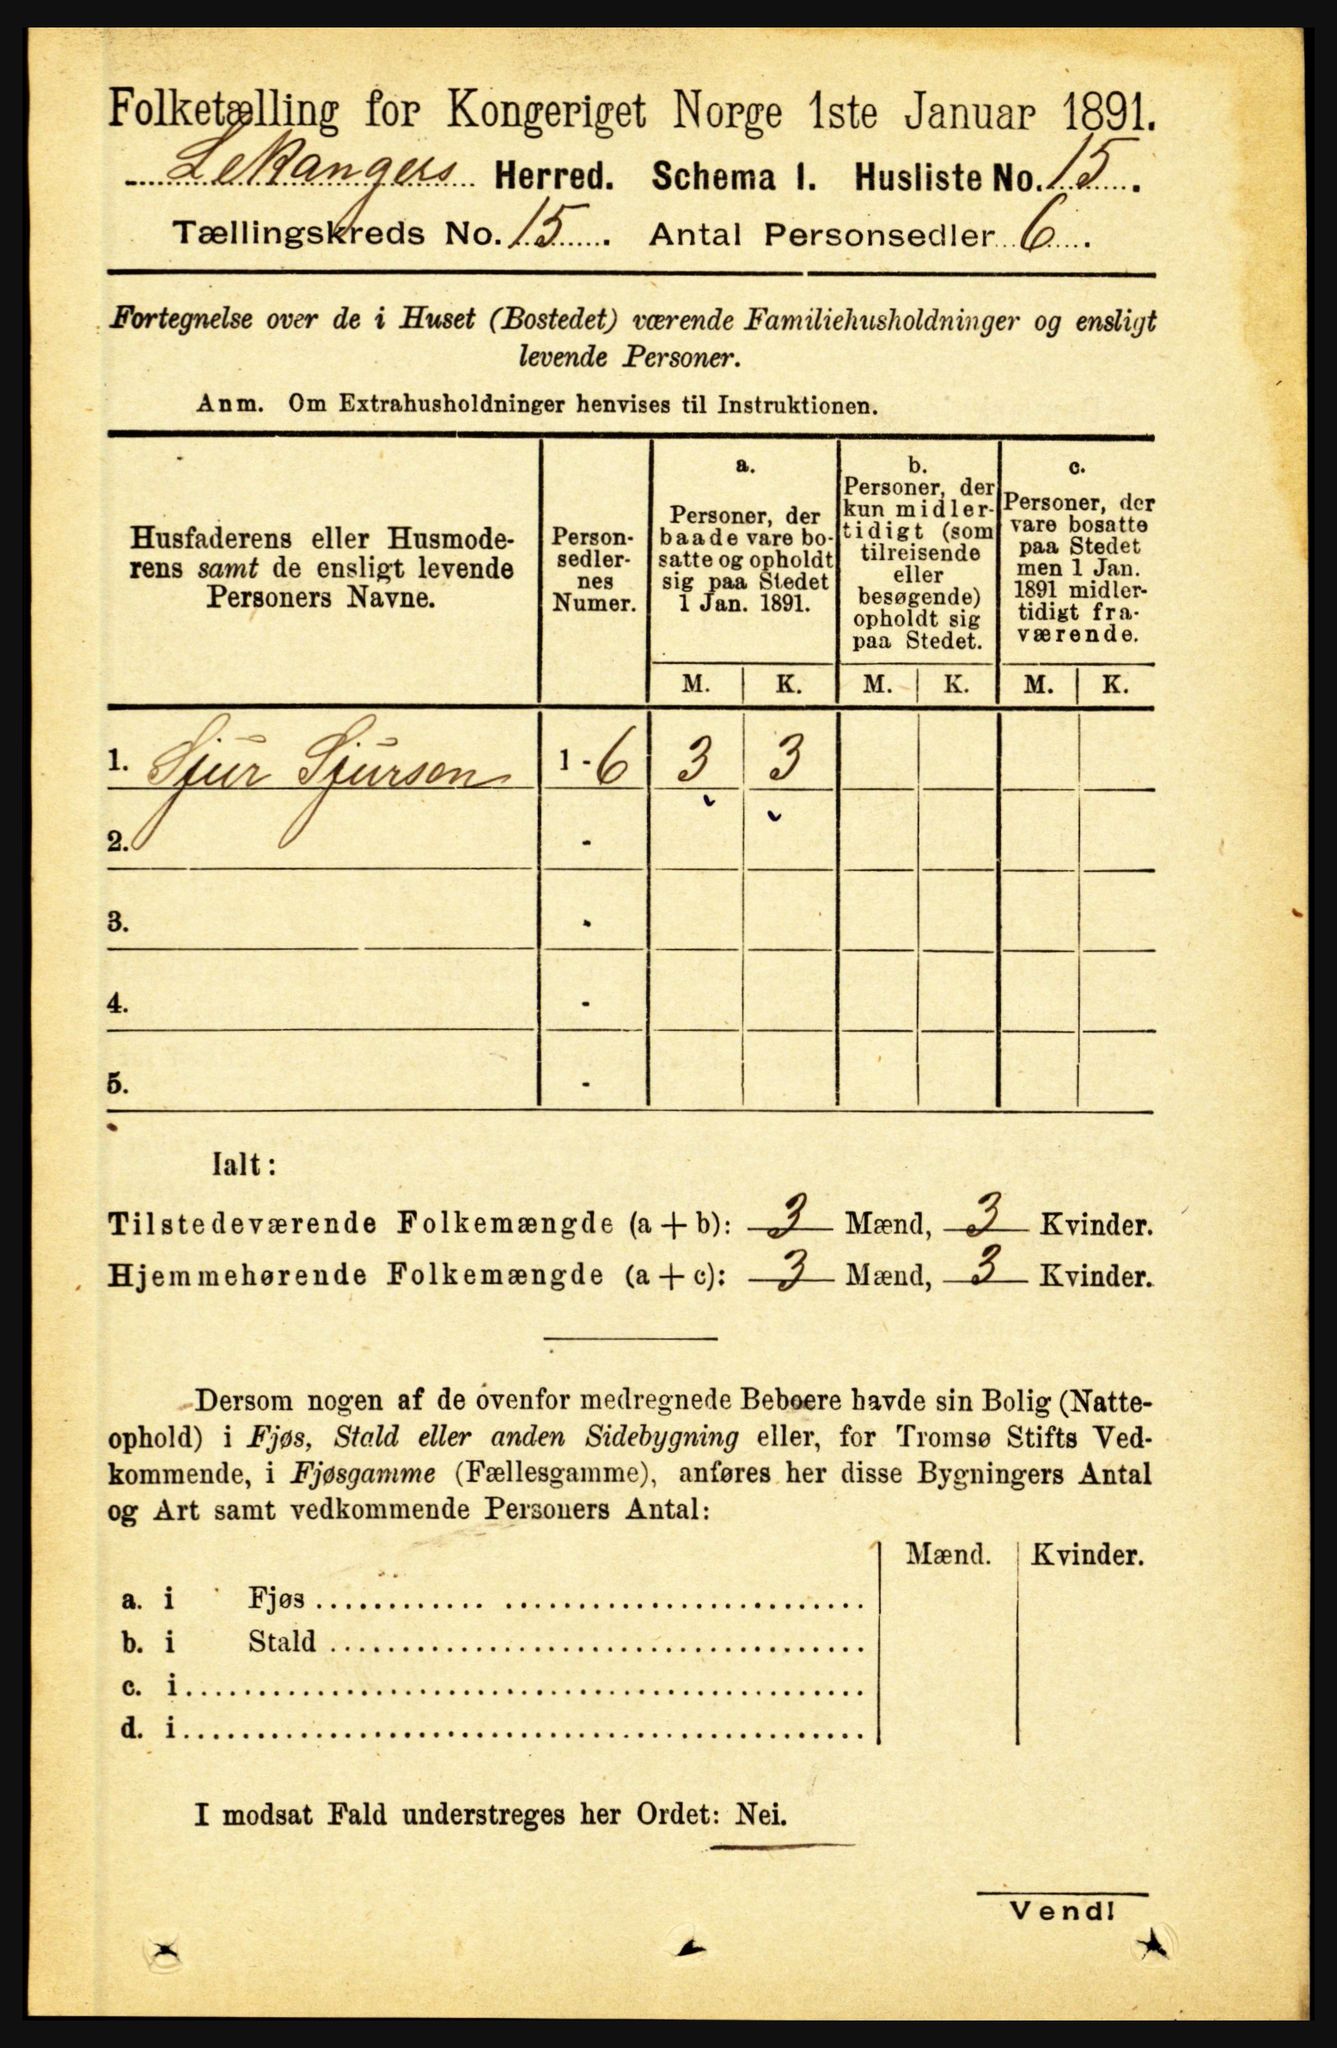 Folketælling for Kongeriget Norge 1ste Januar 1891.
Lekangers Herred. Schema I. Husliste No. 15.
Tællingskreds No. 15. Antal Personsedler 6.
Fortegnelse over de i Huset (Bostedet) værende Familiehusholdninger og ensligt
levende Personer.
Anm. Om Extrahusholdninger henvises til Instruktionen.
Husfaderens eller Husmode-
rens samt de ensligt levende
Personers Navne.
Person-
sedler-
nes
Numer.
a.
Personer, der
baade vare bo-
satte og opholdt
sig paa Stedet
1 Jan. 1891.
b.
Personer, der
kun midler-
tidigt (som
tilreisende
eller
besøgende)
opholdt sig
paa Stedet.
c.
Personer, der
vare bosatte
paa Stedet
men 1 Jan.
1891 midler-
tidigt fra-
værende.
M. K. M. K. M. K.
1. Sjur Sjursen 1 - 6 3 3
2. -
3. -
4. -
5. -
Ialt:
Tilstedeværende Folkemængde (a + b): 3 Mænd, 3 Kvinder.
Hjemmehørende Folkemængde (a + c): 3 Mænd, 3 Kvinder.
Dersom nogen af de ovenfor medregnede Beboere havde sin Bolig (Natte-
ophold) i Fjøs, Stald eller anden Sidebygning eller, for Tromsø Stifts Ved-
kommende, i Fjøsgamme (Fællesgamme), anføres her disse Bygningers Antal
og Art samt vedkommende Personers Antal:
Mænd. Kvinder.
a. i Fjøs
b. i Stald
c. i
d. i
I modsat Fald understreges her Ordet: Nei.
Vend!